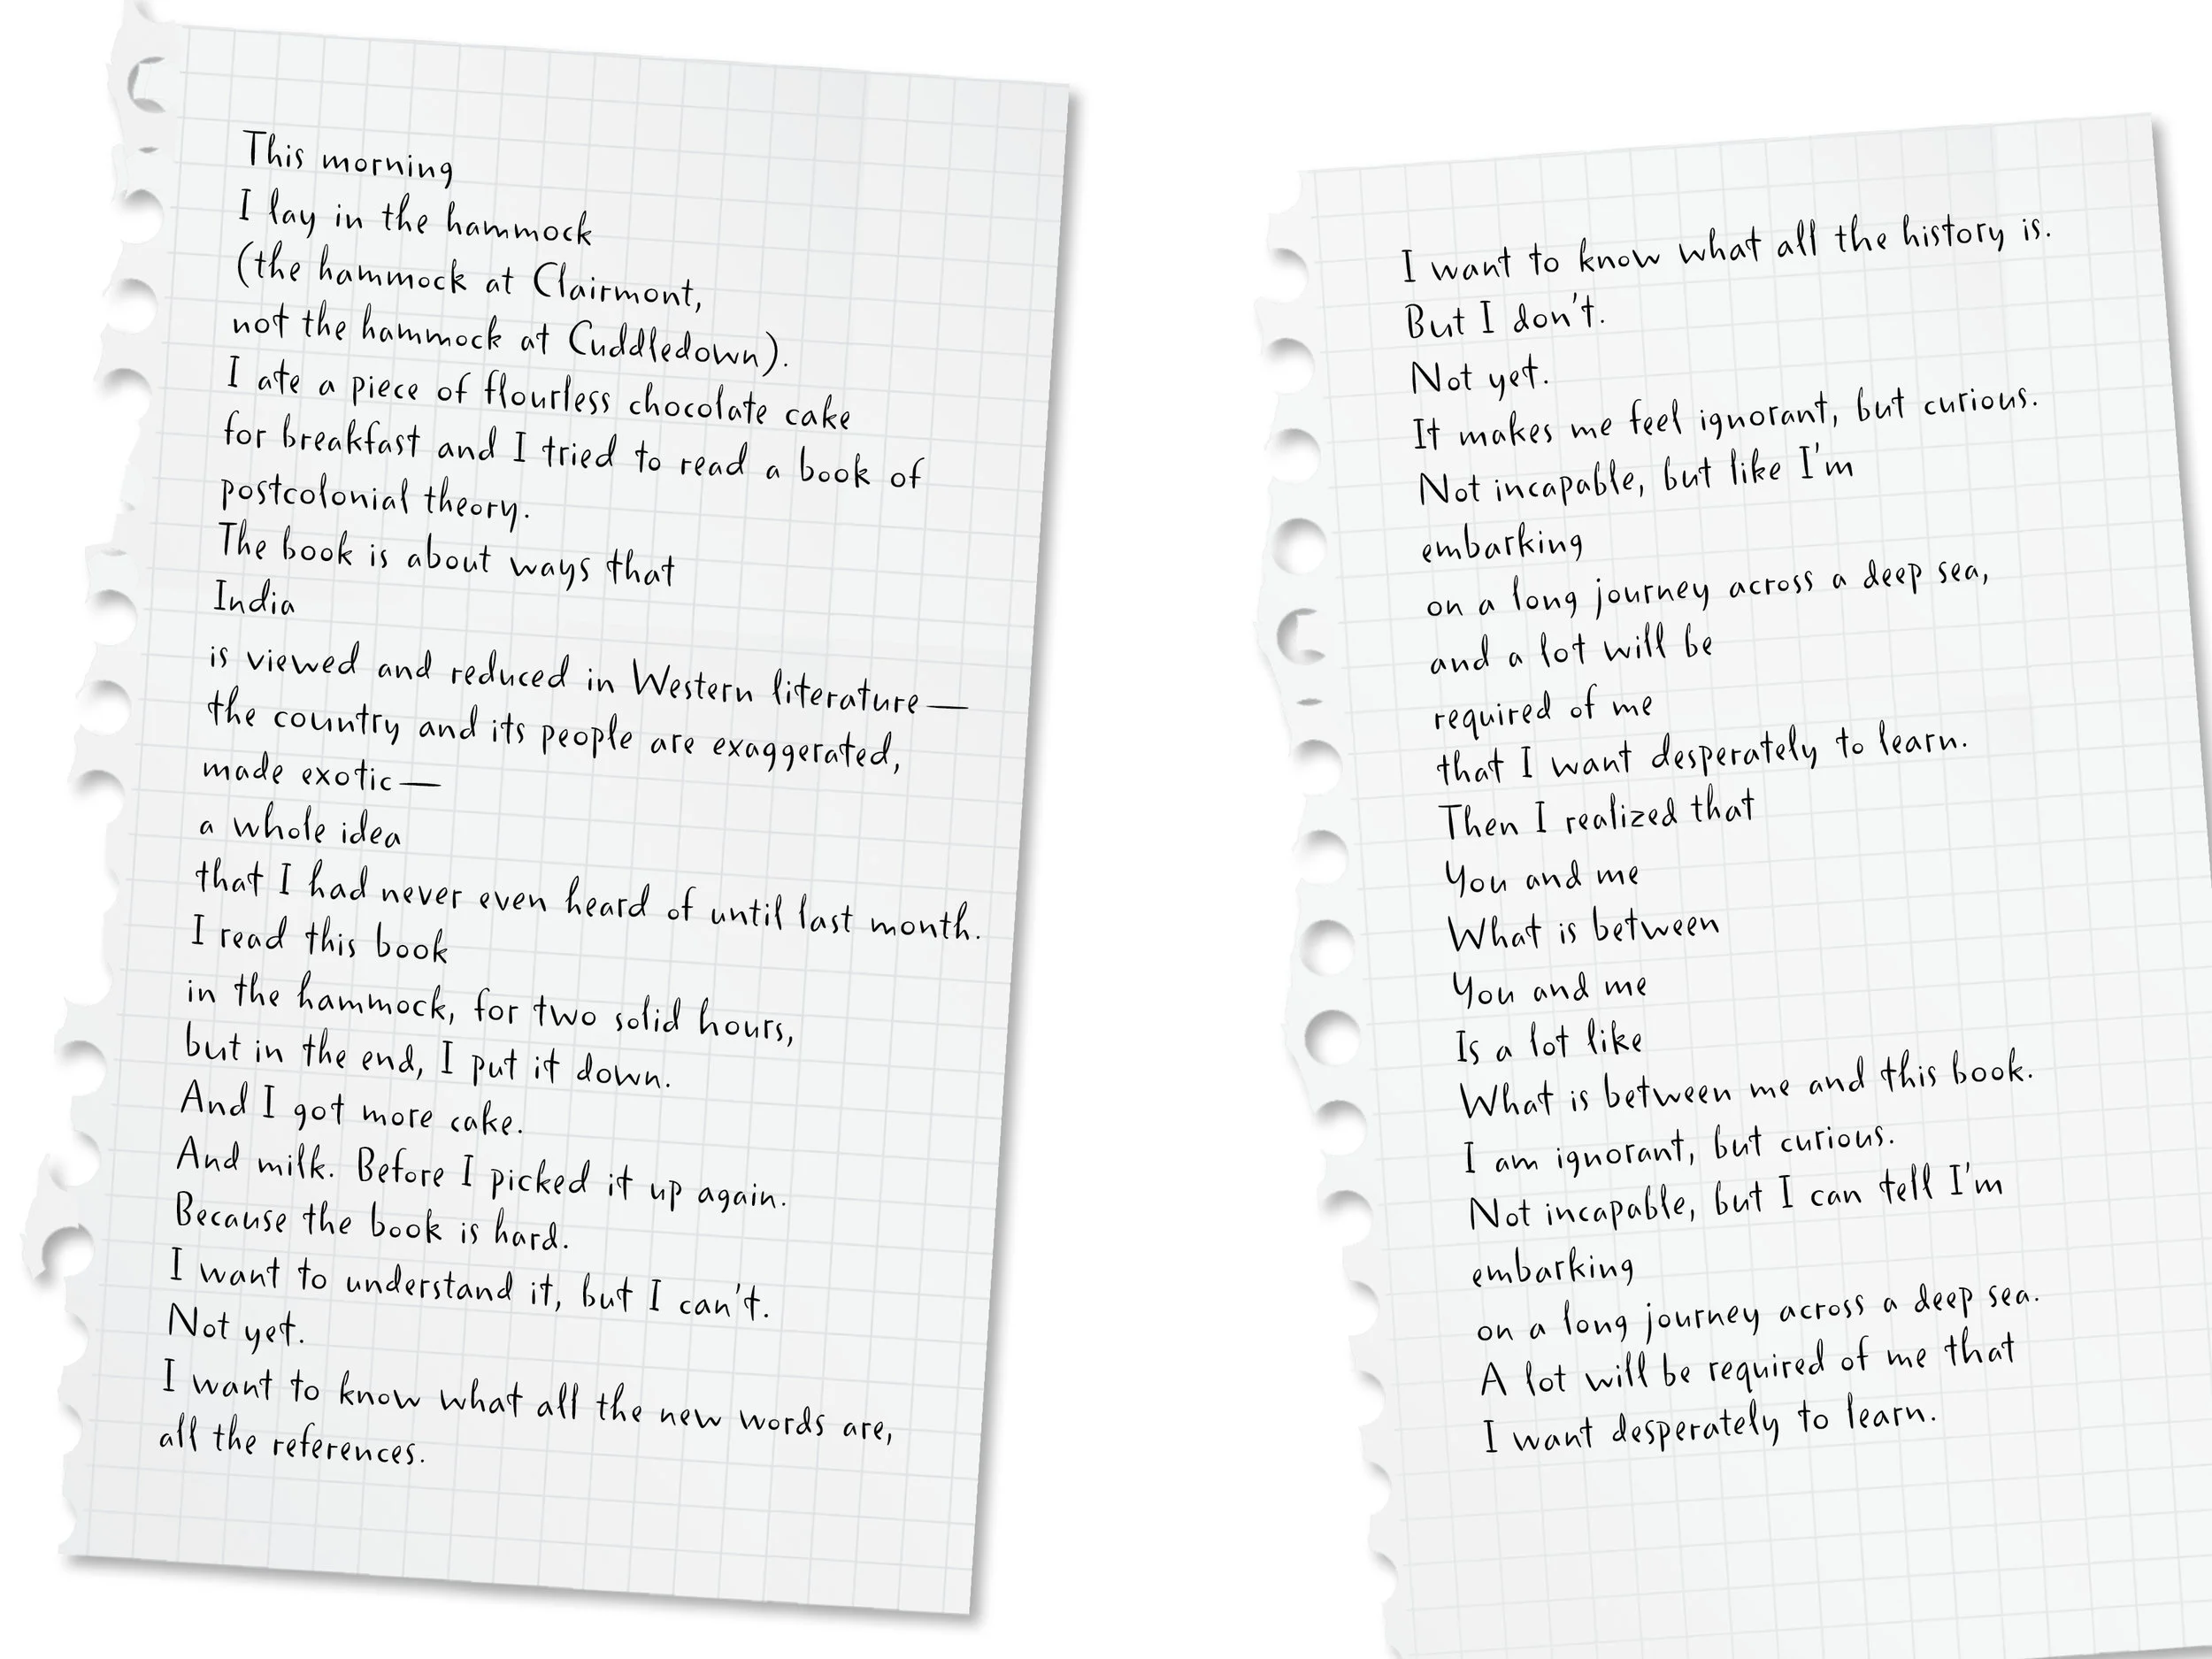 This morning
I lay in the hammock
(the hammock at Clairmont,
not the hammock at Cuddledown).
I ate a piece of flourless chocolate cake
for breakfast and I tried to read a book of
postcolonial theory.
The book is about ways that
India
is viewed and reduced in Western literature—
the country and its people are exaggerated,
made exotic—
a whole idea
that I had never even heard of until last month.
I read this book
in the hammock, for two solid hours,
but in the end, I put it down.
And I got more cake.
And milk. Before I picked it up again.
Because the book is hard.
I want to understand it, but I can't.
Not yet.
I want to know what all the new words are,
all the references.
I want to know what all the history is.
But I don't.
Not yet.
It makes me feel ignorant, but curious.
Not incapable, but like I'm
embarking
on a long journey across a deep sea,
and a lot will be
required of me
that I want desperately to learn.
Then I realized that
You and me
What is between
You and me
Is a lot like
What is between me and this book.
I am ignorant, but curious.
Not incapable, but I can tell I'm
embarking
on a long journey across a deep sea.
A lot will be required of me that
I want desperately to learn.